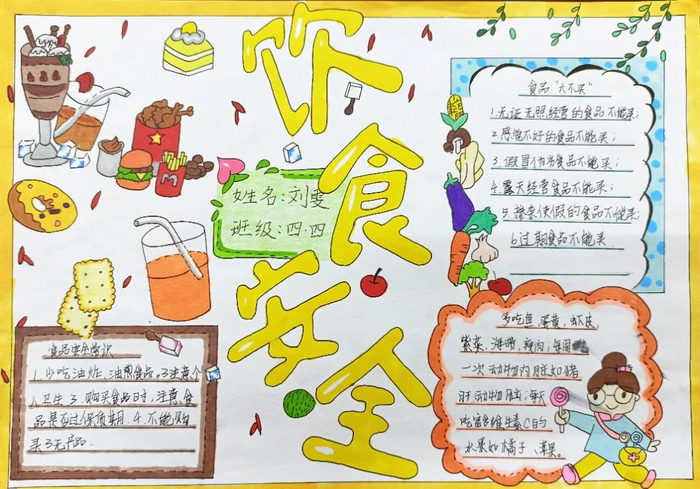 饮食安全
姓名:刘雯
班级:四.四
食品"六不买"
1.无证无照经营的食品不能买;
2.感觉不好的食品不能买;
3.假冒伪劣食品不能买;
4.露天经营食品不能买;
5.掺杂使假的食品不能买;
6.过期食品不能买
食品安全常识
1.少吃油炸、油煎食品,2.注意个
人卫生 3.购买食品时,注意食
品是否过保质期.4.不能购
买三无产品.
多吃鱼,蛋黄,虾皮
紫菜,海带,瘦肉;每周
一次动物内脏如猪
肝动物脑;每天
吃富含维生素C的
水果如橘子、苹果。
M